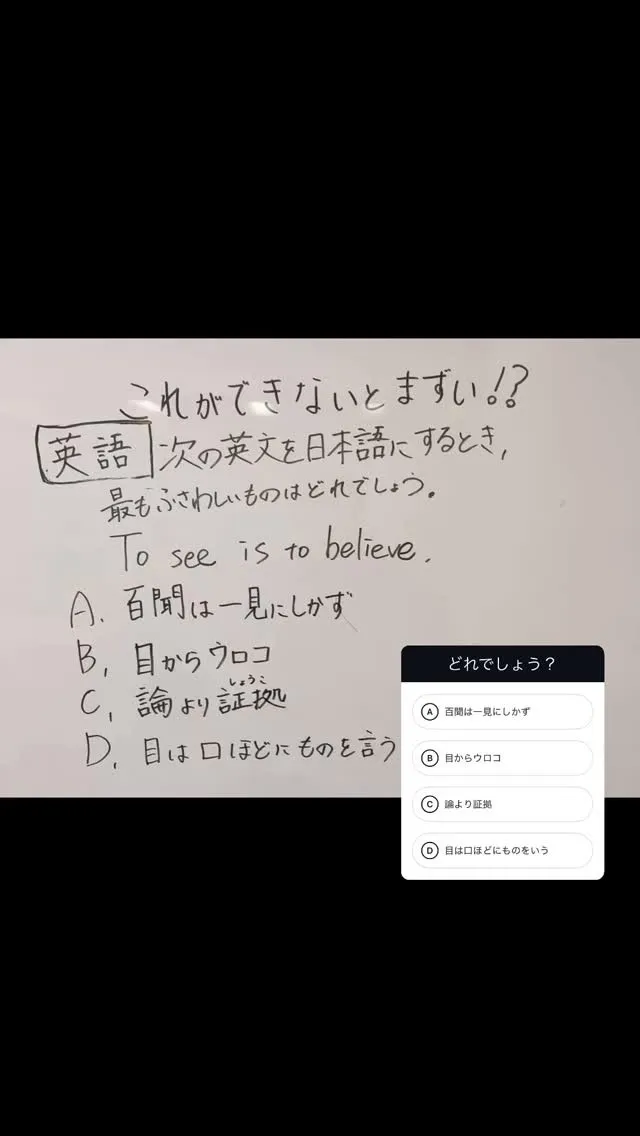 これができないとまずい!?
英語 次の英文を日本語にするとき,
最もふさわしいものはどれでしょう。
To see is to believe.
A. 百聞は一見にしかず
B, 目からウロコ
しょうこ
C, 論より証拠
D, 目は口ほどにものを言う
どれでしょう？
A 百聞は一見にしかず
B 目からウロコ
C 論より証拠
D 目は口ほどにものをいう